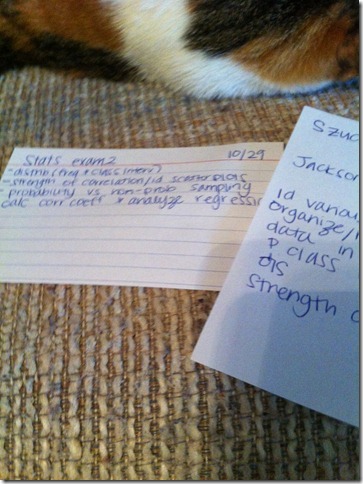 Stats exam 2 10/29
- distrib (freq + class interv)
- strength of correlation/id scatterplots
- probability vs non-prob sampling
calc corr coeff + analyze regressi
Szuc
Jackson
id variou
organize/
data in
class
strength o